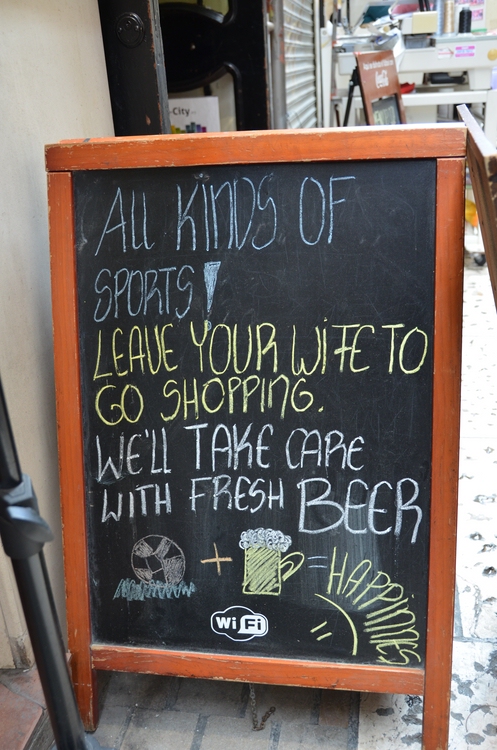 -City
Coca-Cola
ALL KINDS OF
SPORTS!
LEAVE YOUR WIFE TO
GO SHOPPING.
WE'LL TAKE CARE
WITH FRESH BEER
+ = HAPPINNES
Wi Fi